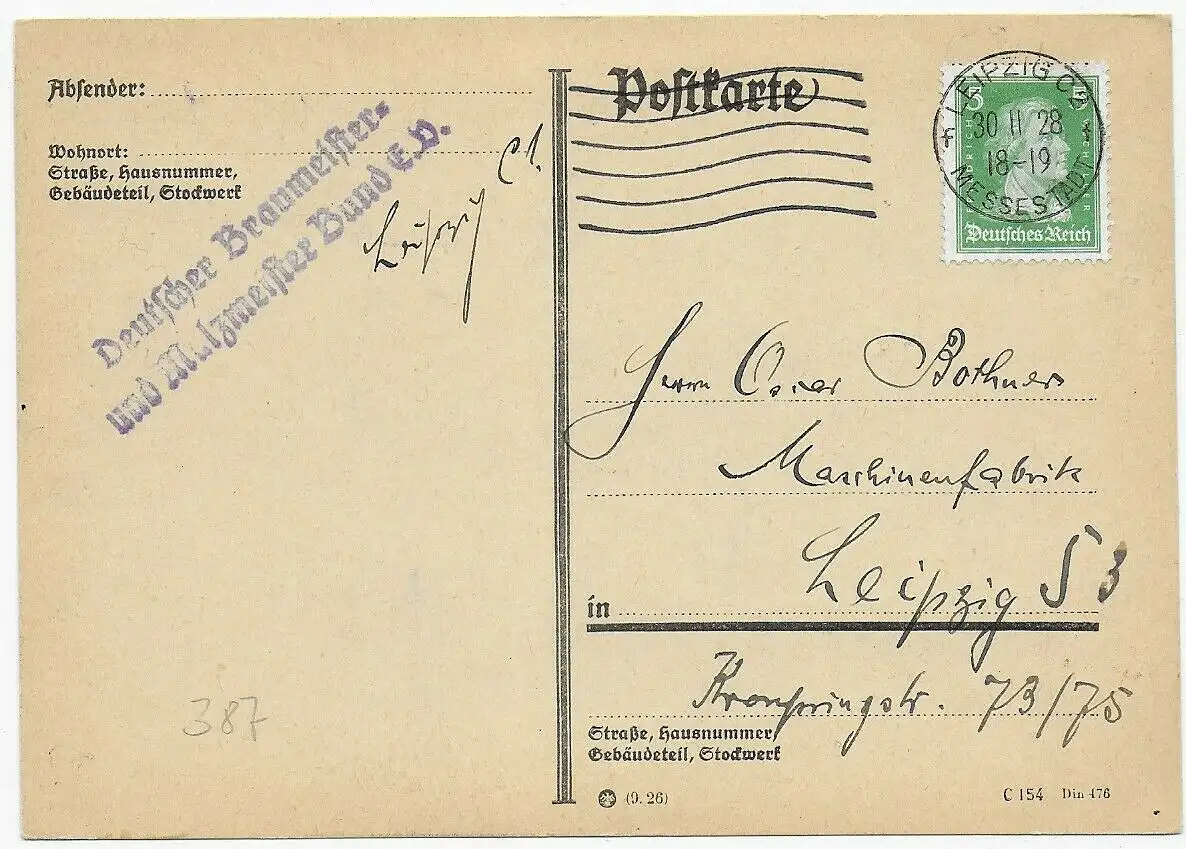 Absender:
Wohnort:
Straße, Hausnummer,
Gebäudeteil, Stockwerk
Deutscher Braumeister-
und Malzmeister Bund E.V.
Leipzig C1.
Postkarte
LEIPZIG C2
30 11 28
18-19
MESSESTADT
3
FRIEDRICH V. SCHILLER
Deutsches Reich
Herrn Oscar Bothner
Maschinenfabrik
in Leipzig S 3
Kronprinzstr. 73/75
Straße, Hausnummer,
Gebäudeteil, Stockwerk
387
(9. 26)
C 154 Din 476